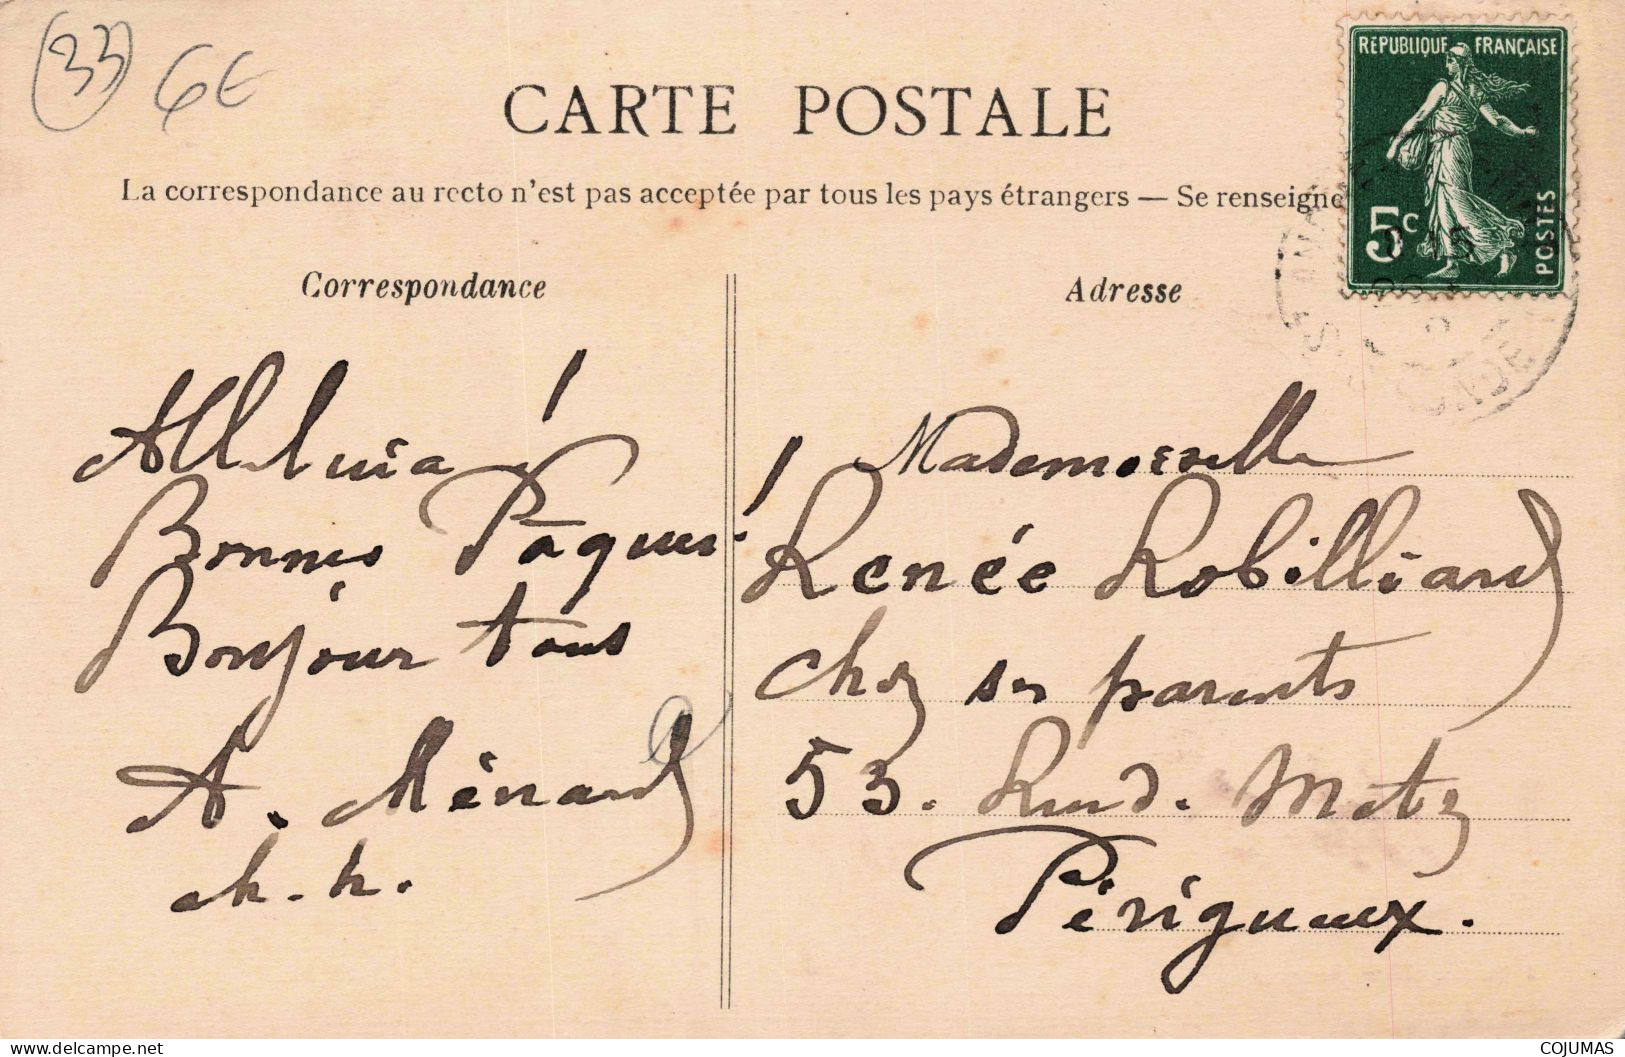 33 6E
CARTE POSTALE
La correspondance au recto n'est pas acceptée par tous les pays étrangers — Se renseigne
RÉPUBLIQUE FRANÇAISE
5c
POSTES
Correspondance
Alleluia!
Bonnes Pâques!
Bonjour tous
A. Ménard
ch. h.
Adresse
Mademoiselle
Renée Robilliard
chez ses parents
53. Rue d. Metz
Périgueux.
www.delcampe.net
COJUMAS